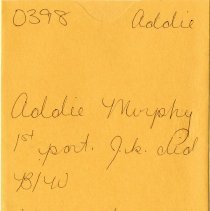 0398 Addie
Addie Murphy
1st port. J.k. Red
B/W